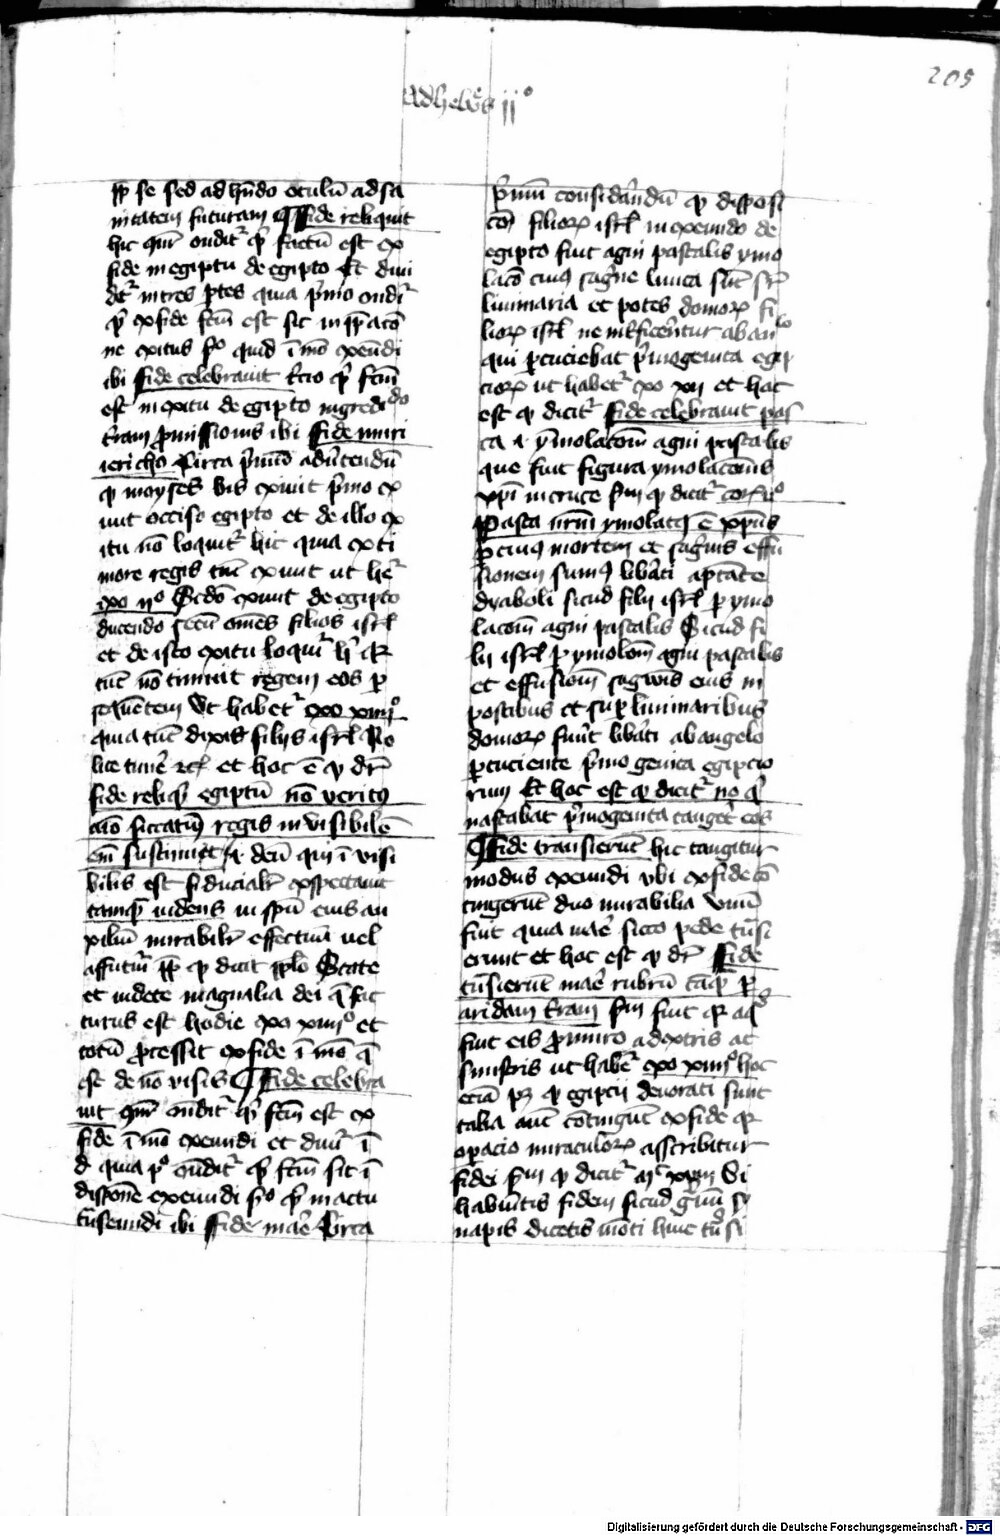 205
Ad heb̅e̅s ij°
ꝓp̅ se sed ad hn̅do oculu̅ ad sa
nitatem futuram ¶ Fide reliquit
hic qu̅r ondit̾ qͥ factu̅ est ex
fide in egiptu de egipto Et diui
dit̾ in tres ꝑtes quia pͥmo ondit̾
qͥ ex fide fc̅m est sic in p̅ꝑac̅o̅
ne exitus s̾o quid i̅ mo̅ exeu̅di
ibi fide celebrauit t̾cio qͥ fc̅m
est in exitu de egipto ingredi̅do
t̾ram ꝓmissionis ibi Fide muri
iericho Circa pͥmu̅ adu̾tendu̅
ꝙ moyses bis exiuit pͥmo ex
iuit occiso egipto et de illo ex
itu no̅ loquit̾ hic quia ex ti
more regis tu̅c exiuit ut he̅t̾
exo ij° Sc̅do exiuit de egipto
ducendo secu̅ om̅es filios isrl̅
et de isto exitu loquit̾ hͥ qꝛ
tu̅c no̅ timuit regem eos ꝑ
seque̅tem Vt habet̾ exo xiiij°
quia tu̅c dixit filijs isrl̅ No
lite time̾ ꝛcͭ et hoc e̅ ꝙ dr̅
fide reliqͥt egiptu̅ no̅ veritꝰ
aīo̅sitatem regis inuisibile̅
em̅ sustinuit .i. deu̅ qui i̅ visi
bilis est fiducialr̅ exspectauit
tamqͣ uidens in spu̅ eius au
xiliu̅ mirabilr̅ effectiuu̅ uel
affutur̅ ꝓp̅ ꝙ dicit ip̅lo State
et uidete magnalia dei q̅ fac
turus est hodie exo xiiij° et
totu̅ ꝓcessit ex fide i̅ mo̅ q̅
est de no̅ visis ¶ Fide celebra
uit qu̅r ondit̾ qͥ fc̅m est ex
fide i̅ mo̅ exeundi et diuit̾ i̅
d̾ quia p° ondit̾ qͥ fc̅m sit i̅
dispon̅e exeundi s̾o qͥ in actu
tn̅seundi ibi Fide mar̾e Circa
pͥmum considerandu̅ ꝙ disposi
cō filioꝝ isrl̅ in exeundo de
egipto fuit agni pascalis ymo
lac̅o̅ cuius sag̅ne linita su̅t sr̅
liminaria et postes domoꝝ fi
lioꝝ isrl̅ ne int̾ficerentur ab angͤlo
qui ꝑcuciebat pͥmogenita egip
cioꝝ ut habet̾ exo xij et hoc
est ꝙ dicit̾ fide celebrauit pas
ca .i. ymolac̅o̅m agni pascalis
que fuit figura ymolac̅o̅nis
xp̅i in cruce s̅m ꝙ dicit̾ cor̅ v°
Pasca nr̅m ymolatꝰ e̅ xp̅us
ꝑ cuiꝰ mortem et sag̅nis effu
sionem sumꝰ lib̾ati a ptāte
dyaboli sicud filij isrl̅ ꝑ ymo
lac̅o̅m agni pascalis Sicud fi
lij isrl̅ ꝑ ymolo̅m agni pascalis
et effusione̅ sag̅wis eius in
postibus et suꝑ liminaribus
domoꝝ fuer̅t lib̾ati ab angelo
ꝑcuciente pͥmogenita egipcio
rum Et hoc est ꝙ dicit̾ ne qͥ
uastabat pͥmogenita tanget̾ eos
¶ Fide transierunt hic tangitur
modus exeundi vbi ex fide co̅
tingerunt duo mirabilia Vnu̅
fuit quia mar̾e sicco pede tn̅si
erunt et hoc est ꝙ dr̅ Fide
tn̅sierunt mar̾e rubru̅ ta̅qͣ ꝑ
aridam t̾ram s̅m fuit qꝛ aqͣ
fuit eis ꝓ muro a dextris ac
sinistris ut habet̾ exo xiiij° hoc
ecia̅ pꝫ ꝙ egipcij deuorati sunt
talia aut̅ co̅tingunt ex fide qꝛ
oꝑacio miraculoꝝ asscribitur
fidei s̅m ꝙ dicit̾ mͭ xvij Si
habueritis fidem sicud gͣnu̅ sy
napis dicetis mo̅ti huic tn̅si
Digitalisierung gefördert durch die Deutsche Forschungsgemeinschaft - DFG